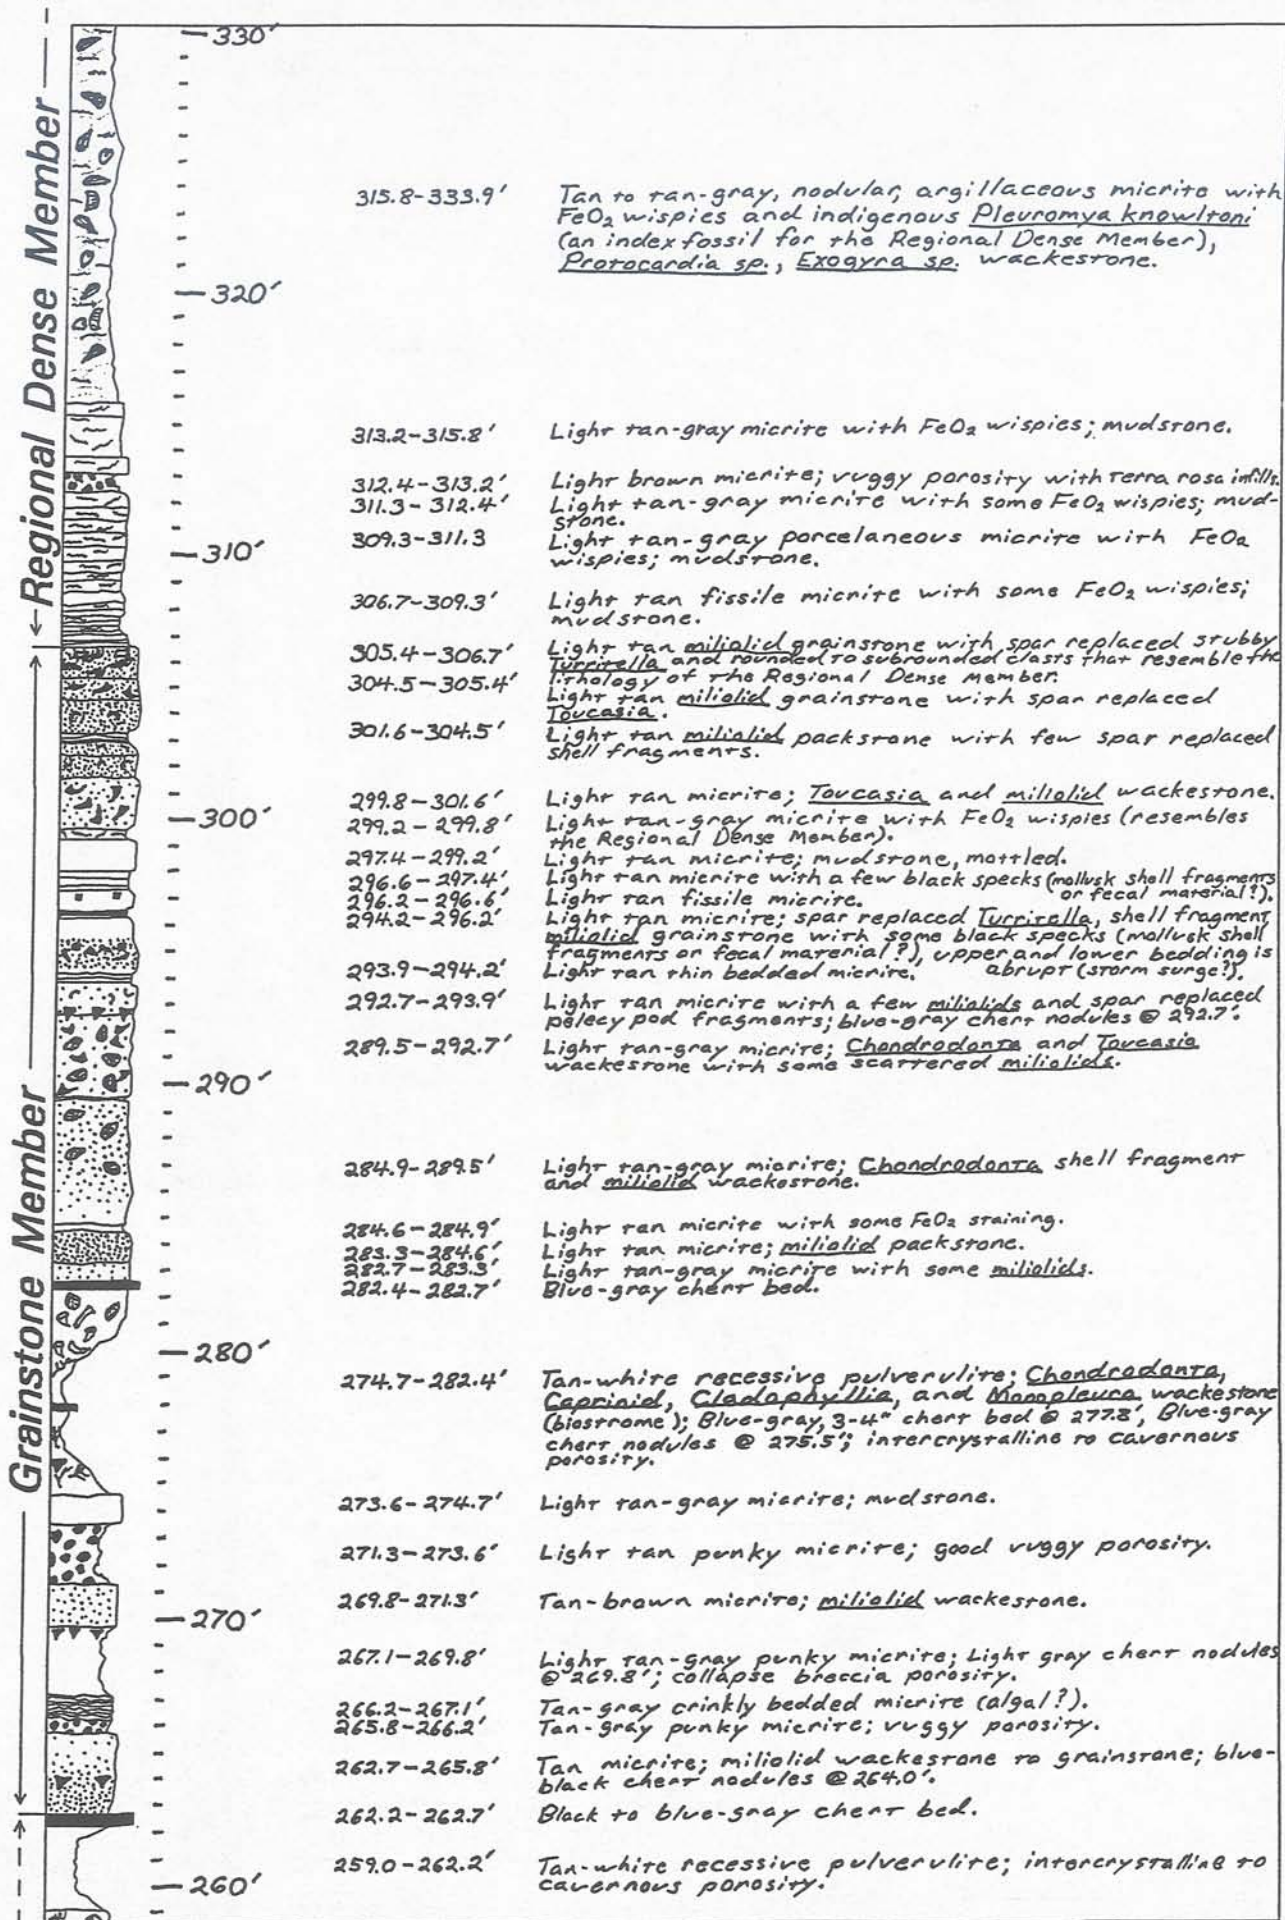 330'
315.8-333.9' Tan to tan-gray, nodular, argillaceous micrite with
FeO₂ wispies and indigenous Pleuromya knowltoni
(an index fossil for the Regional Dense Member),
Protocardia sp., Exogyra sp. wackestone.
320'
Regional Dense Member
313.2-315.8' Light tan-gray micrite with FeO₂ wispies; mudstone.
312.4-313.2' Light brown micrite; vuggy porosity with Terra rosa infills.
311.3-312.4' Light tan-gray micrite with some FeO₂ wispies; mud-
stone.
309.3-311.3 Light tan-gray porcelaneous micrite with FeO₂
wispies; mudstone.
310'
306.7-309.3' Light tan fissile micrite with some FeO₂ wispies;
mudstone.
305.4-306.7' Light tan miliolid grainstone with spar replaced stubby
Turritella and rounded to subrounded clasts that resemble the
lithology of the Regional Dense Member.
304.5-305.4' Light tan miliolid grainstone with spar replaced
Toucasia.
301.6-304.5' Light tan miliolid packstone with few spar replaced
shell fragments.
299.8-301.6' Light tan micrite; Toucasia and miliolid wackestone.
300'
299.2-299.8' Light tan-gray micrite with FeO₂ wispies (resembles
the Regional Dense Member).
297.4-299.2' Light tan micrite; mudstone, mottled.
296.6-297.4' Light tan micrite with a few black specks (mollusk shell fragments
or fecal material?).
296.2-296.6' Light tan fissile micrite.
294.2-296.2' Light tan micrite; spar replaced Turritella, shell fragment,
miliolid grainstone with some black specks (mollusk shell
fragments or fecal material?), upper and lower bedding is
abrupt (storm surge?).
293.9-294.2' Light tan thin bedded micrite.
292.7-293.9' Light tan micrite with a few miliolids and spar replaced
pelecy pod fragments; blue-gray chert nodules @ 292.7'.
289.5-292.7' Light tan-gray micrite; Chondrodonta and Toucasia
wackestone with some scattered miliolids.
290'
284.9-289.5' Light tan-gray micrite; Chondrodonta shell fragment
and miliolid wackestone.
284.6-284.9' Light tan micrite with some FeO₂ staining.
283.3-284.6' Light tan micrite; miliolid packstone.
282.7-283.3' Light tan-gray micrite with some miliolids.
282.4-282.7' Blue-gray chert bed.
Grainstone Member
280'
274.7-282.4' Tan-white recessive pulverulite; Chondrodonta,
Caprinid, Cladophyllia, and Monopleura wackestone
(biostrome); Blue-gray, 3-4" chert bed @ 277.8', Blue-gray
chert nodules @ 275.5'; intercrystalline to cavernous
porosity.
273.6-274.7' Light tan-gray micrite; mudstone.
271.3-273.6' Light tan punky micrite; good vuggy porosity.
269.8-271.3' Tan-brown micrite; miliolid wackestone.
270'
267.1-269.8' Light tan-gray punky micrite; Light gray chert nodules
@ 269.8'; collapse breccia porosity.
266.2-267.1' Tan-gray crinkly bedded micrite (algal?).
265.8-266.2' Tan-gray punky micrite; vuggy porosity.
262.7-265.8' Tan micrite; miliolid wackestone to grainstone; blue-
black chert nodules @ 264.0'.
262.2-262.7' Black to blue-gray chert bed.
259.0-262.2' Tan-white recessive pulverulite; intercrystalline to
cavernous porosity.
260'